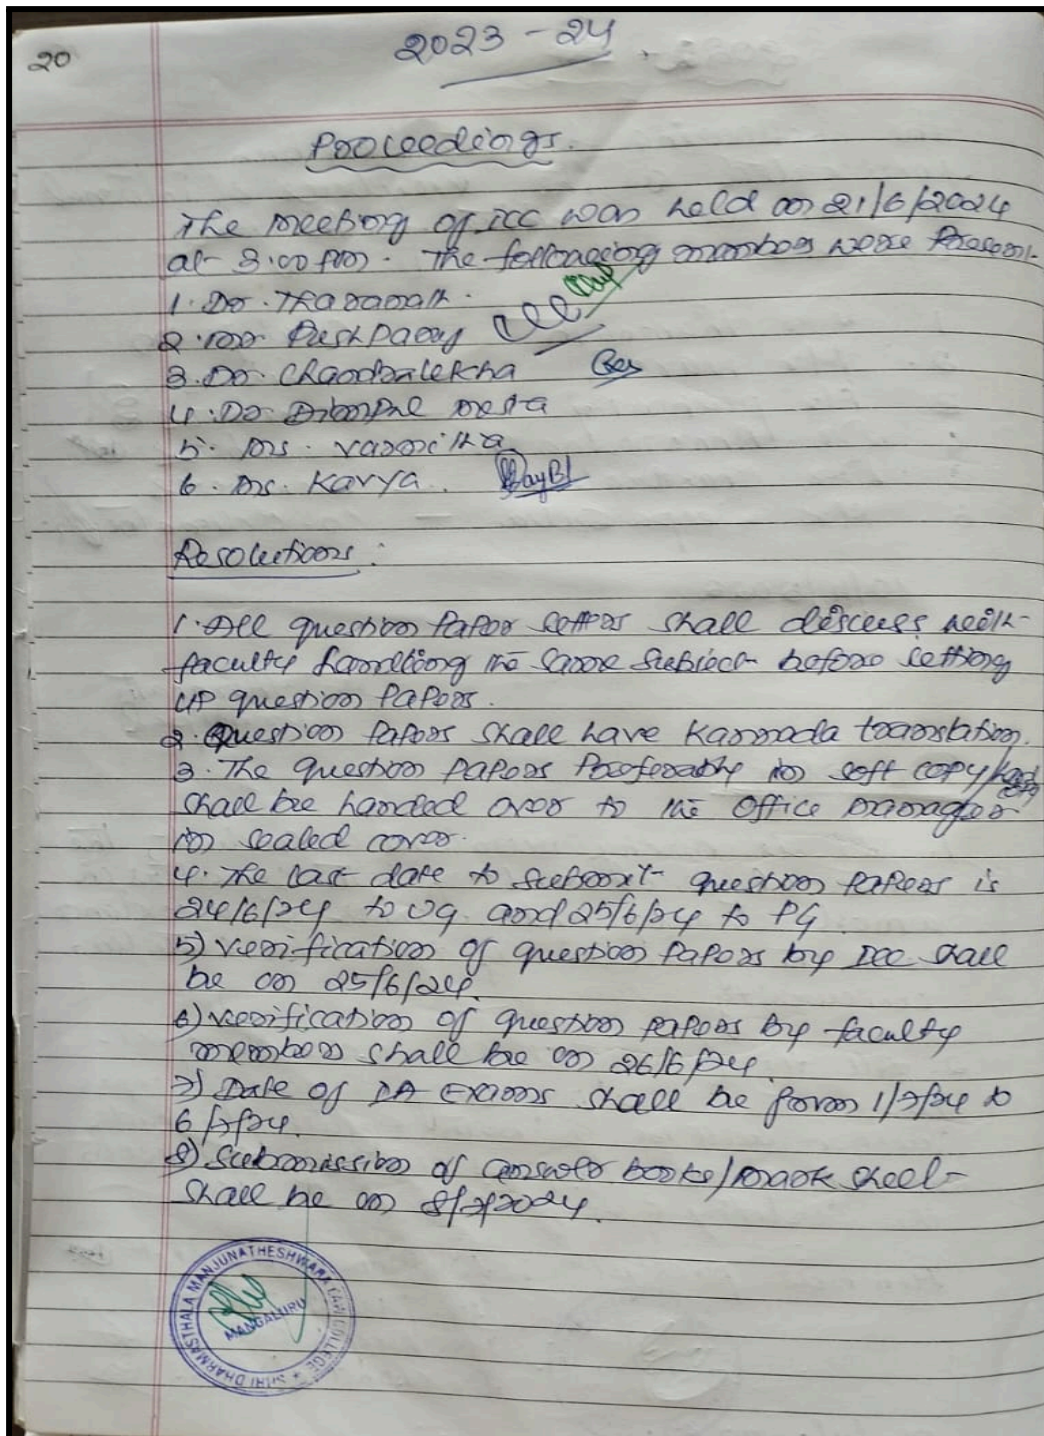 20
2023 - 24
Proceedings.
The meeting of ICC was held on 21/6/2024
at 3.00 pm. The following members were Present.
1. Dr. Tharanath.
2. Mr. Pushparaj
3. Dr. Chandralekha
4. Dr Dimple Mesta
5. Ms.
6. Ms. Karya.
Resolutions :
1. All question Paper setters shall discuss with
faculty handling the same Subject before setting
up question Papers.
2. Question Papers shall have Kannada translation.
3. The question papers Preferably in soft copy/
shall be handed over to the Office manager
in sealed cover.
4. The last date to submit question papers is
24/6/24 to UG and 25/6/24 to PG
5) verification of question Papers by ICC shall
be on 25/6/24.
6) verification of question papers by faculty
members shall be on 26/6/24.
7) Date of IA Exams shall be from 1/7/24 to
6/7/24.
8) Submission of answer books/mark sheet
shall be on 8/7/2024.
SHRI DHARMASTHALA MANJUNATHESHWARA LAW COLLEGE
MANGALURU